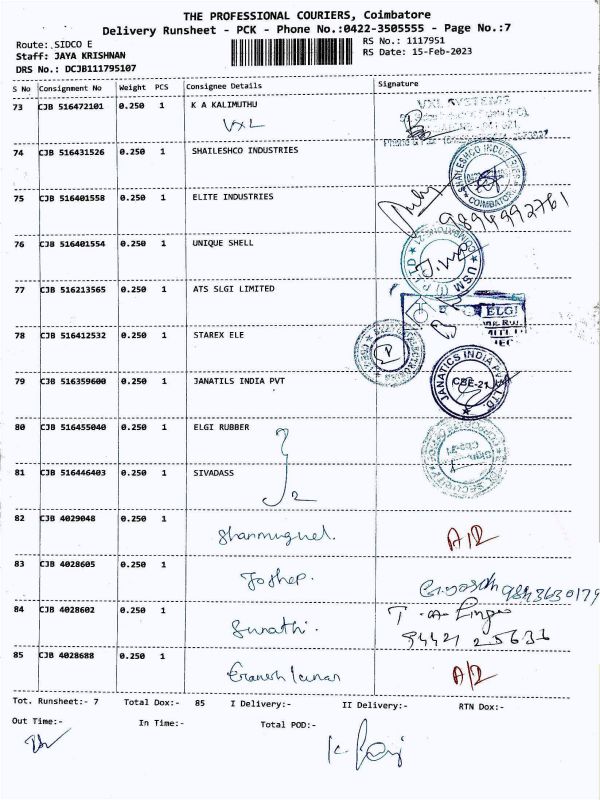 THE PROFESSIONAL COURIERS, Coimbatore
Delivery Runsheet - PCK - Phone No.:0422-3505555 - Page No.:7
Route: SIDCO E
Staff: JAYA KRISHNAN
DRS No.: DCJB111795107
RS No.: 1117951
RS Date: 15-Feb-2023
S No Consignment No Weight PCS Consignee Details Signature
73 CJB 516472101 0.250 1 K A KALIMUTHU
VXL
VXL SYSTEMS
74 CJB 516431526 0.250 1 SHAILESHCO INDUSTRIES
SHAILESHCO INDUSTRIES COIMBATORE
75 CJB 516401558 0.250 1 ELITE INDUSTRIES
9894992761
76 CJB 516401554 0.250 1 UNIQUE SHELL
USM (I) P LTD COIMBATORE-21
77 CJB 516213565 1 ATS SLGI LIMITED
0.250
ELGI
78 CJB 516412532 0.250 1 STAREX ELE
79 CJB 516359600 0.250 1 JANATILS INDIA PVT
JANATICS INDIA PVT LTD
CBE-21
80 CJB 516455040 0.250 1 ELGI RUBBER
SECURITY
81 CJB 516446403 0.250 1 SIVADASS
2
82 CJB 4029048 0.250 1
Shanmugavel.
A/R
83 CJB 4028605 0.250 1
Joshep.
9843630179
84 CJB 4028602 0.250 1
Sunathi.
94421 25631
85 CJB 4028688 0.250 1
Ganesh kumar
A/R
Tot. Runsheet:- 7 Total Dox:- 85 I Delivery:- II Delivery:- RTN Dox:-
Out Time:- In Time:- Total POD:-